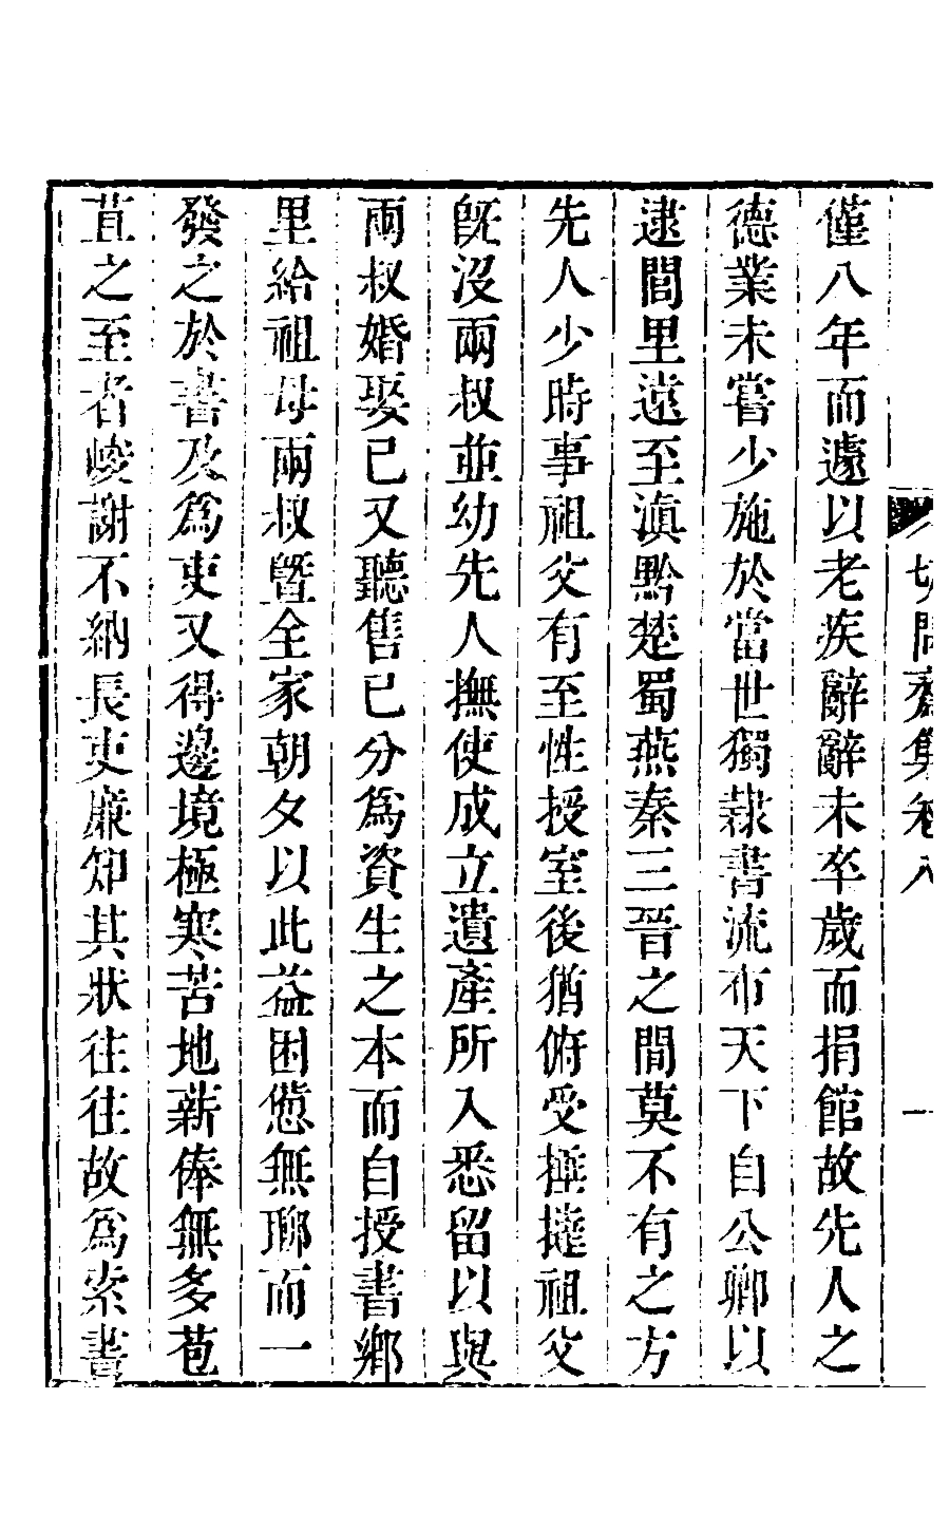 切問齋集卷八 一
僅八年而遽以老疾辭辭未卒歲而捐館故先人之
德業未嘗少施於當世獨隷書流布天下自公卿以
逮閭里遠至滇黔楚蜀燕秦三晉之間莫不有之方
先人少時事祖父有至性授室後猶俯受捶撻祖父
旣沒兩叔並幼先人撫使成立遺產所入悉留以與
兩叔婚娶已又聽售已分爲資生之本而自授書鄉
里給祖母兩叔曁全家朝夕以此益困憊無聊而一
發之於書及爲吏又得邊境極寒苦地薪俸無多苞
苴之至者峻謝不納長吏廉知其狀往往故爲索書